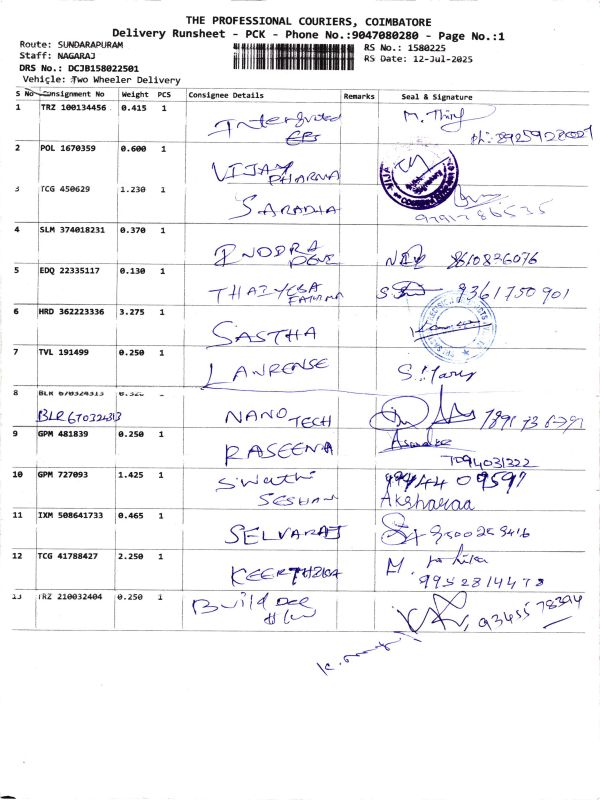 THE PROFESSIONAL COURIERS, COIMBATORE
Delivery Runsheet - PCK - Phone No.:9047080280 - Page No.:1
Route: SUNDARAPURAM
RS No.: 1580225
Staff: NAGARAJ
RS Date: 12-Jul-2025
DRS No.: DCJB158022501
Vehicle: Two Wheeler Delivery
S No Consignment No Weight PCS Consignee Details Remarks Seal & Signature
1 TRZ 100134456 0.415 1 Integrated
2 POL 1670359 0.600 1 VIJAY PHARMA
3 TCG 450629 1.230 1 SARADHA
4 SLM 374018231 0.370 1 INDDRA DEVI 8610836076
5 EDQ 22335117 0.130 1 FATHIMA 9361750901
6 HRD 362223336 3.275 1 SASTHA
7 TVL 191499 0.250 1 LAWRENSE
8 BLR 670324313 0.320 1 NANO TECH
BLR670324313
9 GPM 481839 0.250 1 RASEENA
7094031322
10 GPM 727093 1.425 1 Swathi SESHAN
Aksharaa
11 IXM 508641733 0.465 1 SELVARAJ
12 TCG 41788427 2.250 1 KEERTHIKA
9952814478
13 TRZ 210032404 0.250 1 Build 9345578394